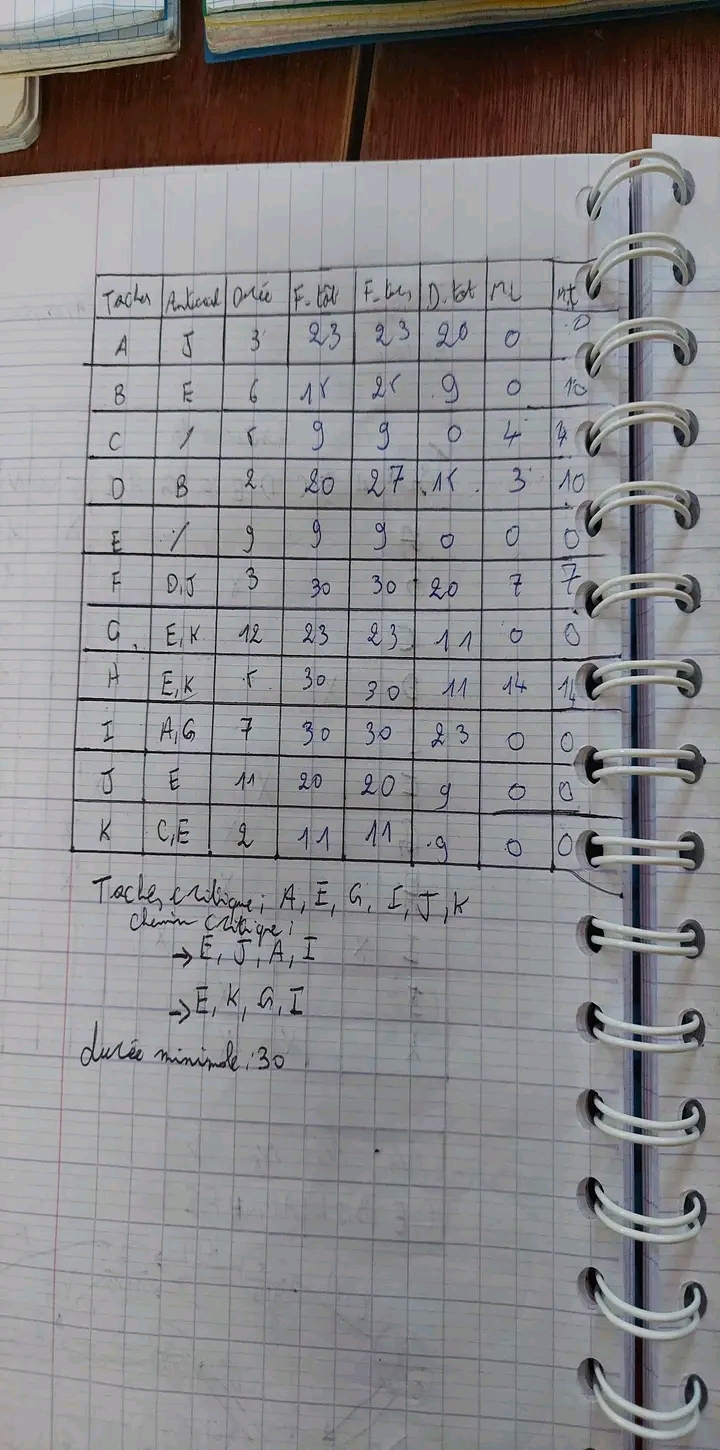 Taches Antécéd Durée F. tôt F. tars D. tot ML mt
A J 3 23 23 20 0 0
B E 6 15 25 9 0 10
C / 5 9 9 0 4 4
D B 2 20 27 15 3 10
E / 9 9 9 0 0 0
F D,J 3 30 30 20 7 7
G E,K 12 23 23 11 0 0
H E,K 5 30 30 11 14 14
I A,G 7 30 30 23 0 0
J E 11 20 20 9 0 0
K C,E 2 11 11 9 0 0
Taches critique; A, E, G, I, J, K
chemin critique;
→ E, J, A, I
→ E, K, G, I
durée minimale: 30